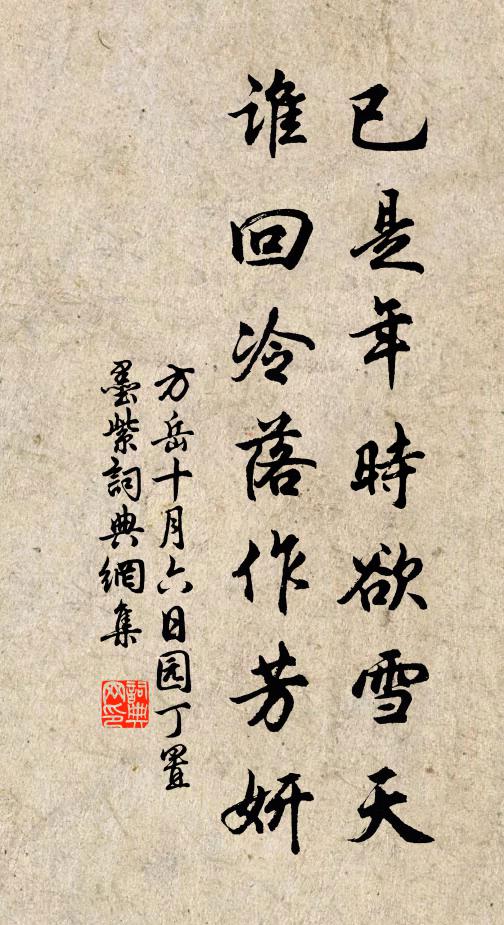 已是年時欲雪天
谁回冷落作芳妍
方岳十月六日园丁置
墨紫詞典網集
詞典网印